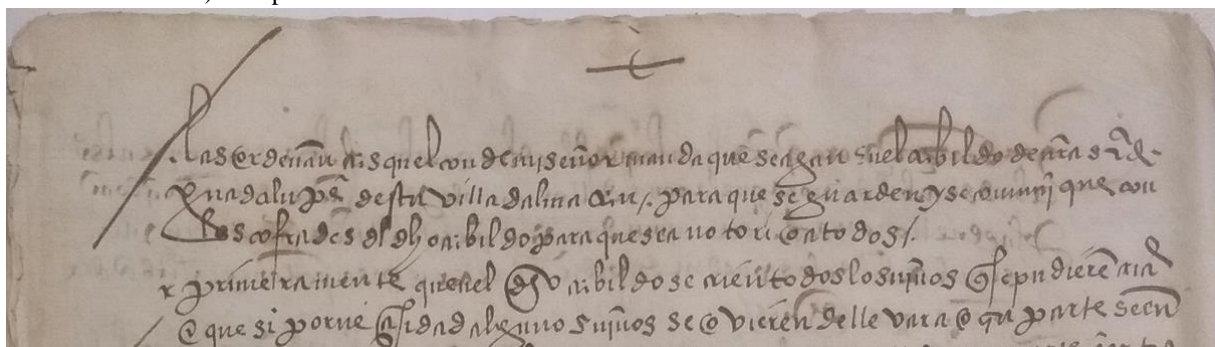 las ordenanças quel conde my señor manda que se agan en el cabildo de nra srª de
guadalupe desta villa dalmaçan / para que se guarden y se comuniquen con
los cofrades del dho cabildo para que sea notorio a todos /.
primeramente que en el dho cabildo se crien todos los niños q se pudieren criar
o que si por neçesidad algunos niños se ovieren de llevar a otra parte sean